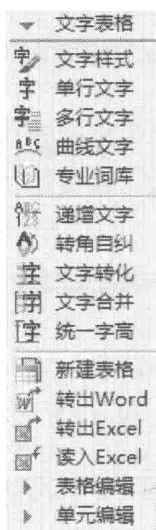 文字表格
文字样式
单行文字
多行文字
曲线文字
专业词库
递增文字
转角自纠
文字转化
文字合并
统一字高
新建表格
转出Word
转出Excel
读入Excel
表格编辑
单元编辑